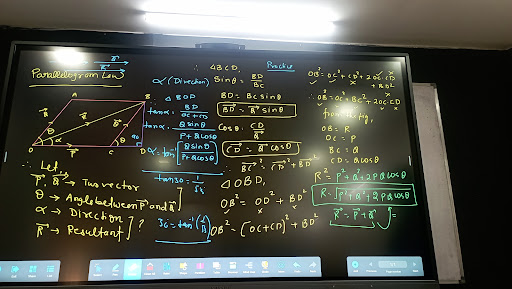 Parallelogram Law
A
B
O
P
C
D
90
θ
α
∴ Let
P, Q → Two vector
θ → Angle between P and Q
α → Direction
R → Resultant
?
α (Direction)
△ BOD
tanα = BD / OC + CD
tanα = Q sinθ / P + Q cosθ
α = tan⁻¹ Q sinθ / P + Q cosθ
tan30 = 1/√3
30 = tan⁻¹ (1/√3)
∴ △BCD, Practice
Sinθ = BD / BC
BD = BC sinθ
BD = Q sinθ
Cosθ = CD / Q
CD = Q cosθ
BC² = CD² + BD²
△OBD,
OB² = OD² + BD²
OB² = (OC + CD)² + BD²
∴ OB² = OC² + CD² + 2OC·CD + BD²
∴ OB² = OC² + BC² + 2OC·CD
from fig,
OB = R
OC = P
BC = Q
CD = Q cosθ
R² = P² + Q² + 2PQ cosθ
R = √P² + Q² + 2PQ cosθ
R = P + Q